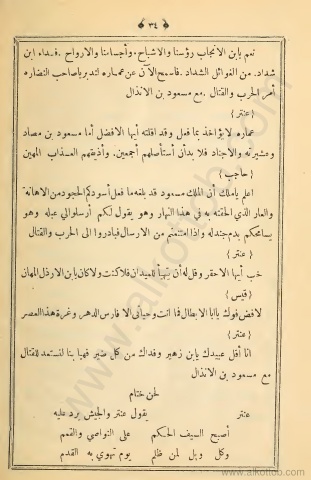 ﴿ ٣٤ ﴾
نعم يابن الانجاب رؤسنا والاشباح. وأجسامنا والارواح. فداء ابن
شداد. من الغوائل الشداد. فاسمح الآن عن عماره لتدبر ياصاحب النضاره
أمر الحرب والقتال. مع مسعود بن الانذال
{ عنتر }
عماره لا يؤاخذ بما فعل وقد اقلته أيها الافضل أما مسعود بن مصاد
وعشيرته والاجناد فلا بد أن أستأصلهم أجمعين. وأذيقهم العذاب المهين
{ حاجب }
اعلم ياملك أن الملك مسعود قد بلغه ما فعل أسودكم الجحود من الاهانة
والعار الذي الحقته به في هذا النهار وهو يقول لكم أرسلوا لي عبله وهو
يسامحكم بدم جندله واذا امتنعتم من الارسال فبادروا الى الحرب والقتال
{ عنتر }
خب أيها الاحقر وقل له أن يتهيأ للميدان فلا كنت ولا كان يابن الارذل المهان
{ قيس }
لافض فوك ياابا الابطال فما انت وحياتي الا فارس الدهر وغرة هذا العصر
{ عنتر }
انا أقل عبيدك يابن زهير وفداك من كل ضير فهيا بنا لنستعد للقتال
مع مسعود بن الانذال
لحن ختام
عنتر يقول عنتر والجيش يرد عليه
أصبح السيف الحكم على النواصي والقمم
وكل ويل لمن ظلم يوم تهوي به القدم
www.alkottob.com